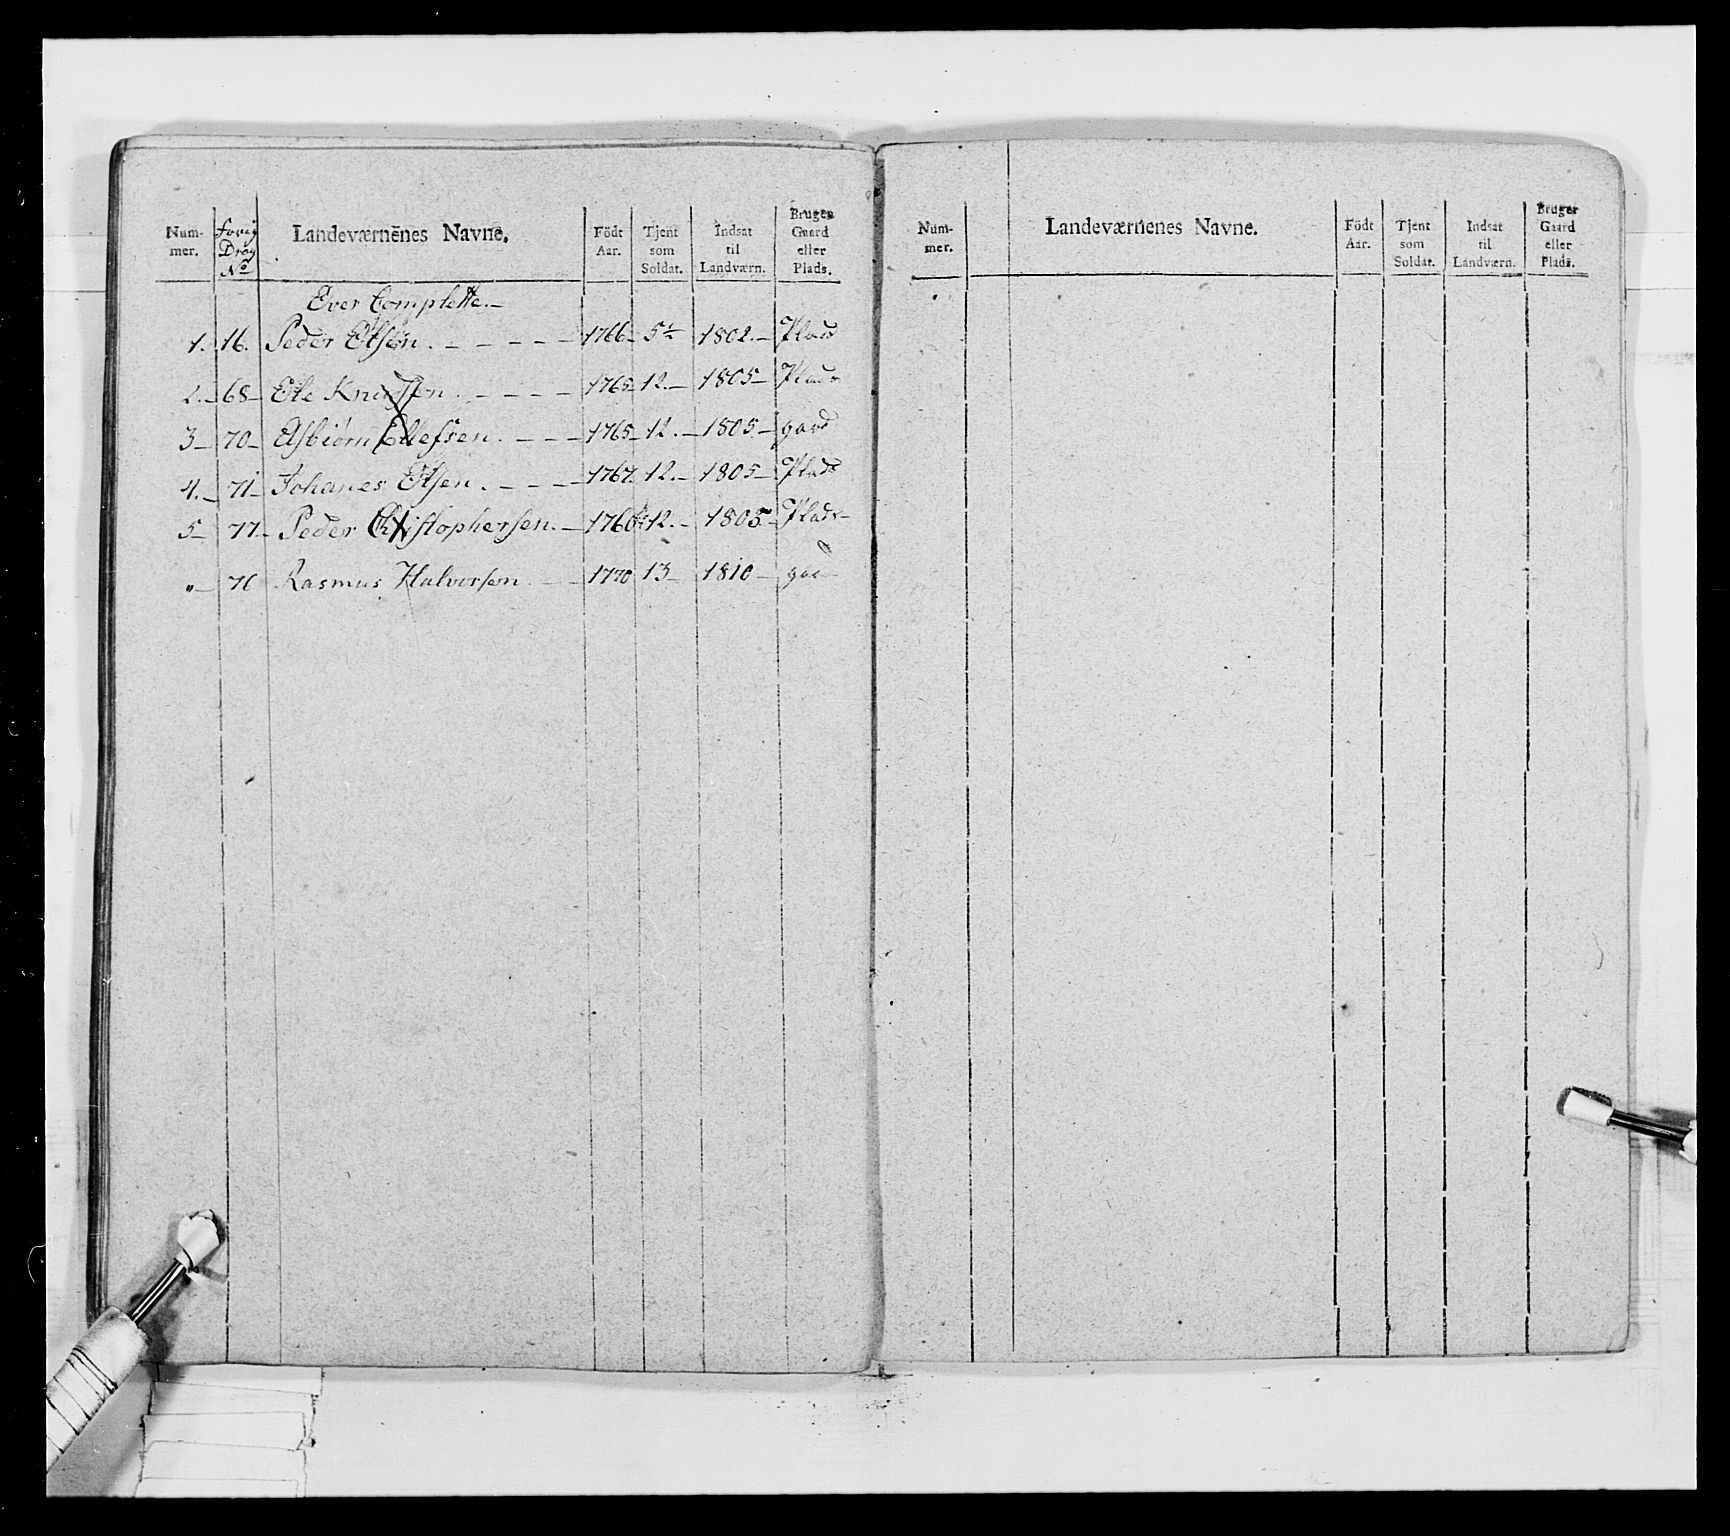 Num-
mer.
Forrig
Drag
No
Landeværnenes Navne.
Födt
Aar.
Tjent
som
Soldat.
Indsat
til
Landværn.
Bruger
Gaard
eller
Plads.
Over Complette.
1. 16. Peder Olsen. 1766 5 1802. Plads
2. 68 Ole Knudsen. 1765 12. 1805 Plads
3 70 Asbiörn Ellefsen. 1765 12. 1805 gard
4. 71 Johanes Olsen. 1767 12. 1805 Plads
5 77 Peder Christophersen. 1766 12. 1805 Plads
" 76 Rasmus Halvorsen. 1770 13 1810
Num-
mer.
Landeværnenes Navne.
Födt
Aar.
Tjent
som
Soldat.
Indsat
til
Landværn.
Bruger
Gaard
eller
Plads.